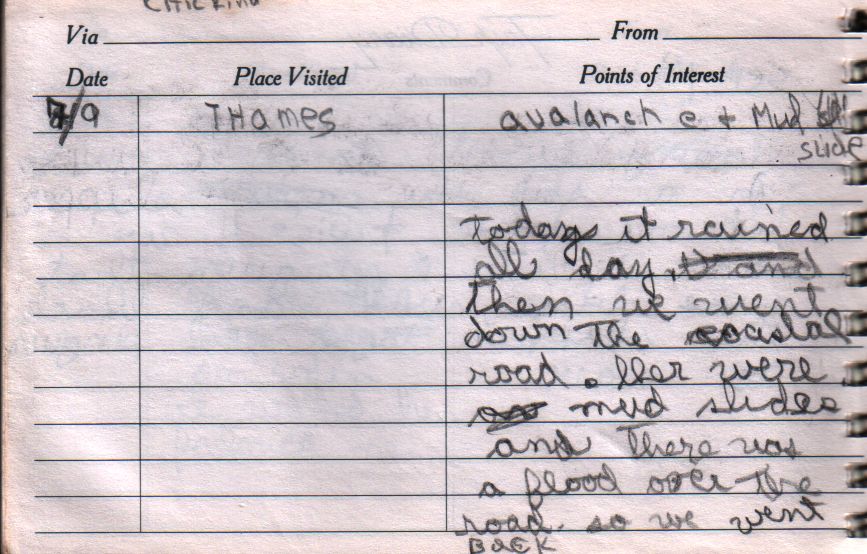 Via From
Date Place Visited Points of Interest
7/9 THames avalanch e + Mud
slide
today it rained
all day, and
then we went
down The coastal
road. ther were
mud slides
and There was
a flood over The
road. so we went
BacK